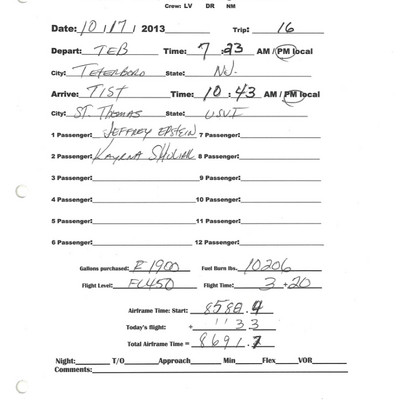 Crew: LV DR NM
Date: 10/17/2013 Trip: 16
Depart: TEB Time: 7:23 AM / PM local
City: TETERBORO State: NJ.
Arrive: TIST Time: 10:43 AM / PM local
City: ST. THOMAS State: USVI
1 Passenger: JEFFREY EPSTEIN 7 Passenger:
2 Passenger: KARYNA SHULIAK 8 Passenger:
3 Passenger: 9 Passenger:
4 Passenger: 10 Passenger:
5 Passenger: 11 Passenger:
6 Passenger: 12 Passenger:
Gallons purchased: E 1900 Fuel Burn lbs. 10206
Flight Level: FL450 Flight Time: 3+20
Airframe Time: Start:
Today's flight: +
Total Airframe Time = 8691.7
Night: T/O Approach Min Flex VOR
Comments: